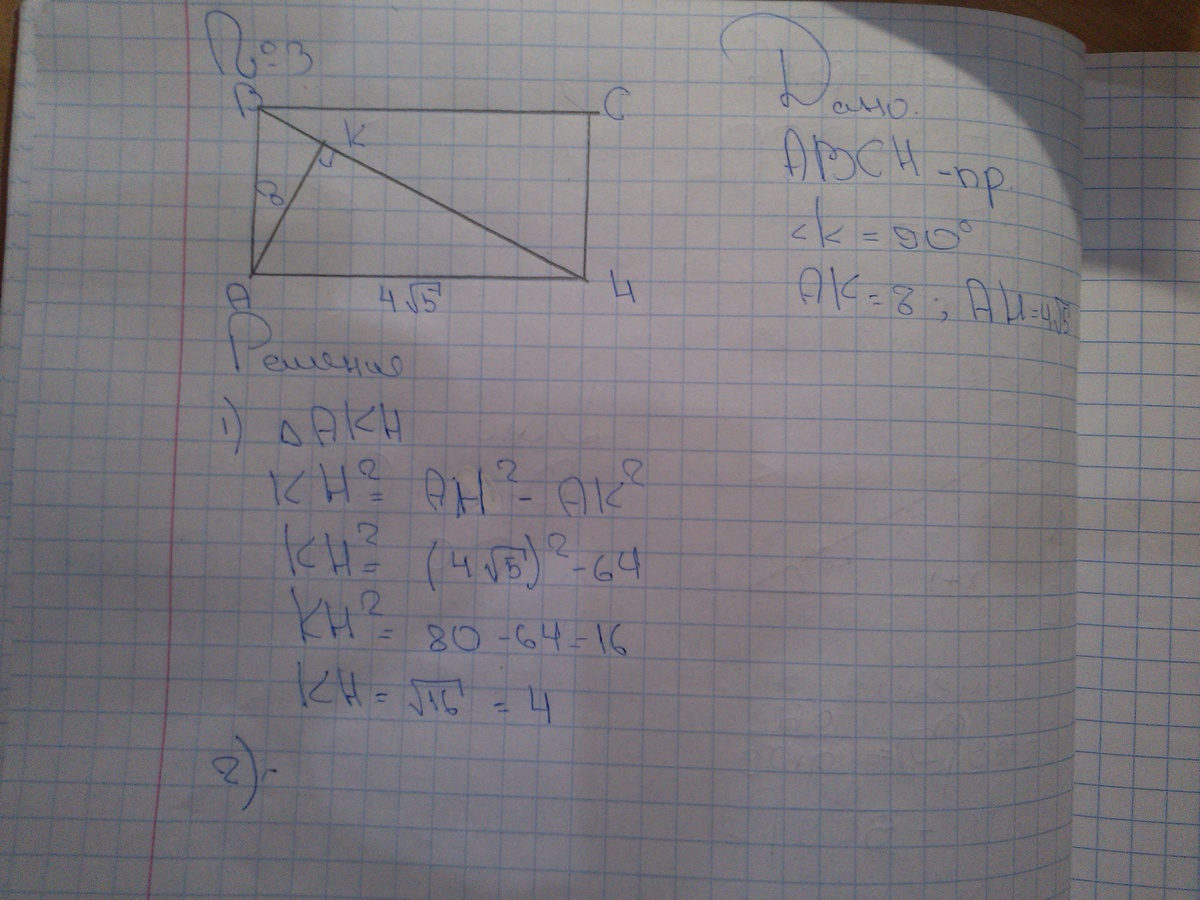 №3
B
C
K
8
A
4√5
H
Дано.
ABCH -пр.
<K = 90°
AK = 8 ; AH=4√5
Решение
1) △ AKH
KH² = AH² - AK²
KH² = (4√5)² - 64
KH² = 80 - 64 = 16
KH = √16 = 4
2)